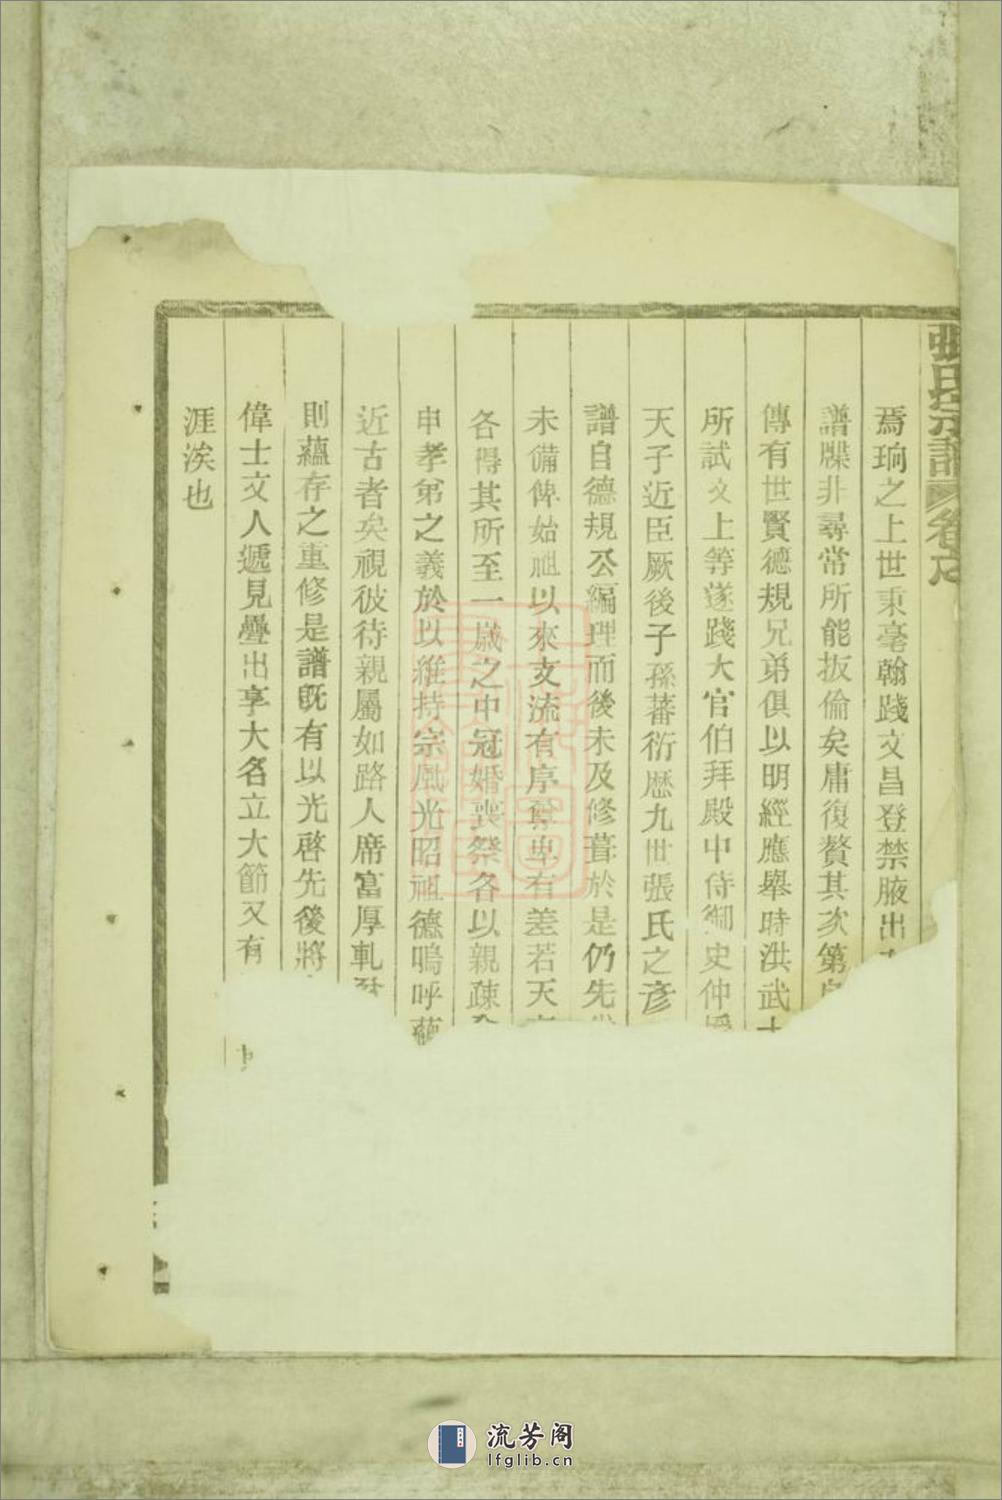 張氏宗譜 卷之
焉珦之上世秉毫翰踐文昌登禁腋出
譜牒非尋常所能扳倫矣庸復贅其次第
傳有世賢德規兄弟俱以明經應舉時洪武十
所試文上等遂踐大官伯拜殿中侍御史仲
天子近臣厥後子孫蕃衍歷九世張氏之彥
譜自德規公編理而後未及修葺於是仍先
未備俾始祖以來支流有序尊卑有差若天
各得其所至一歲之中冠婚喪祭各以親疎
申孝弟之義於以維持宗風光昭祖德嗚呼
近古者矣視彼待親屬如路人席富厚軋
則蘊存之重修是譜既有以光啓先後將
偉士文人遞見疊出享大名立大節又有
涯涘也
流芳阁
lfglib.cn